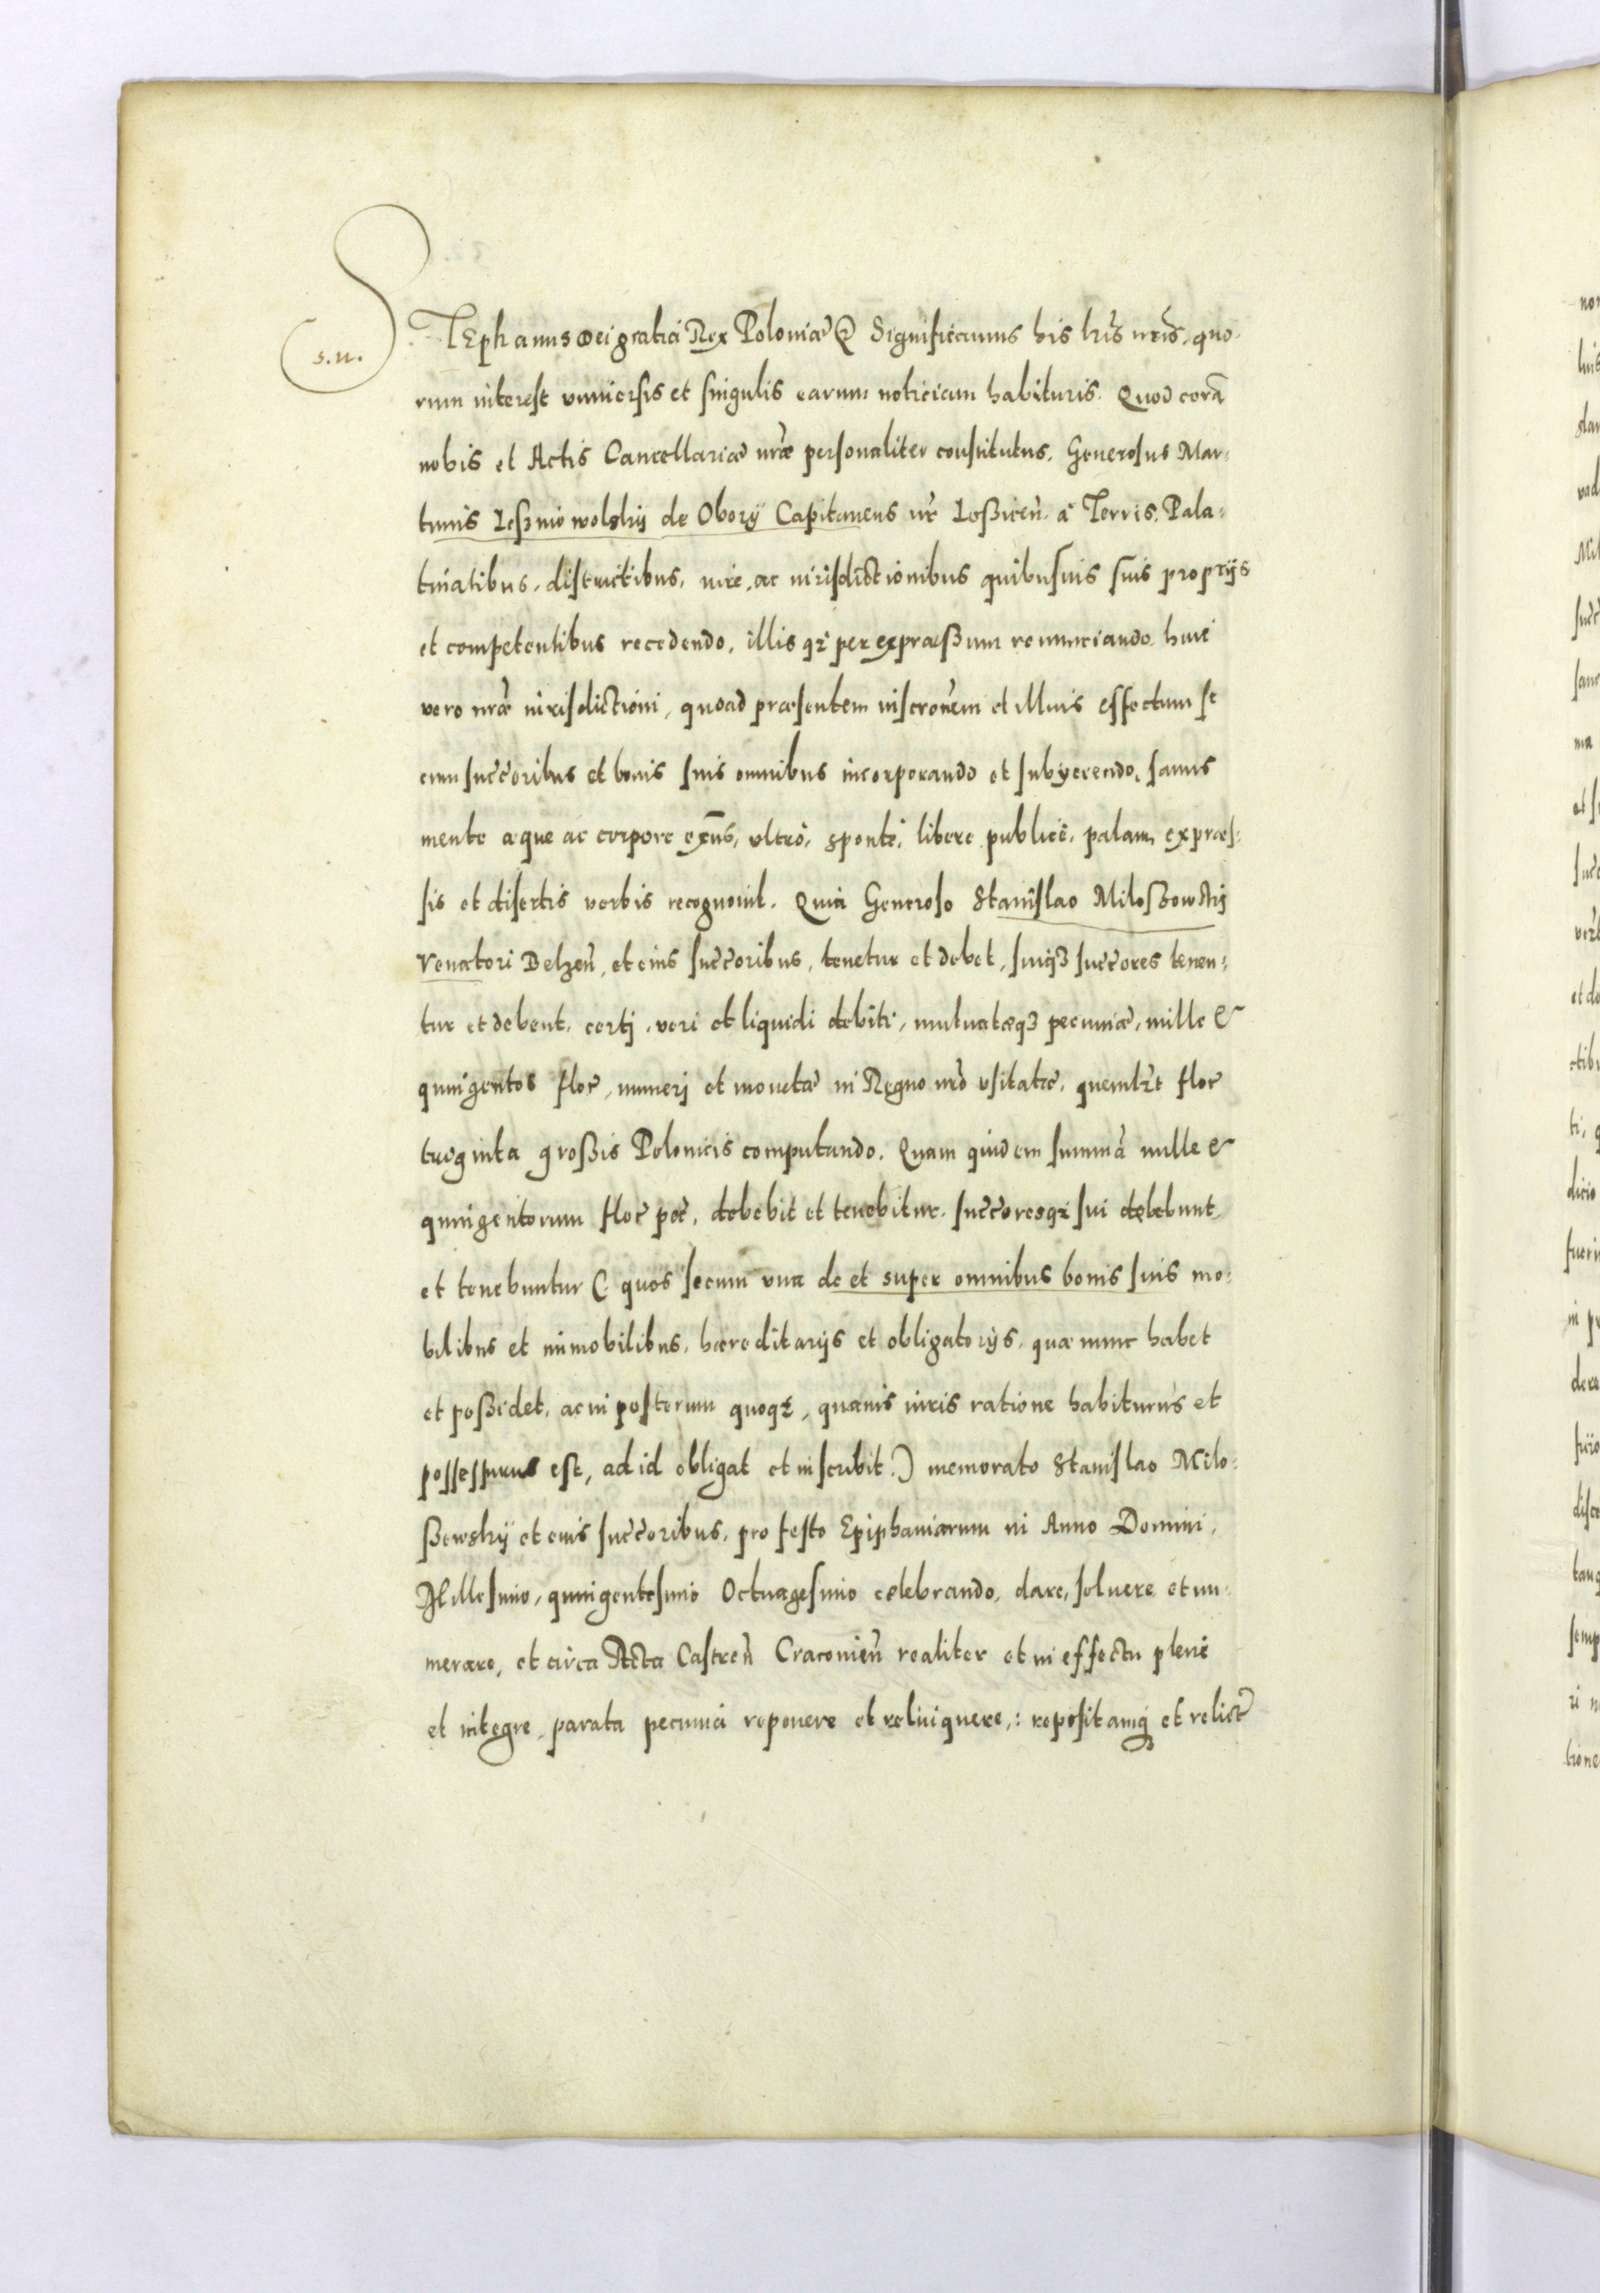 STEphanus Dei gratia Rex Poloniæ & Significamus his lris nris, quo-
s.n.
rum interest vniuersis et singulis earum noticiam habituris. Quod corā
nobis et Actis Cancellariæ nræ personaliter constitutus. Generosus Mar-
tinus Leszniowolskij de Obory Capitaneus nr Loßicen̄. à Terris, Pala-
tinatibus, districtibus, iure, ac iurisdictionibus quibusuis suis proprijs
et competentibus recedendo, illisq; per expræßum renunciando, huic
vero nræ iurisdictioni, quoad præsentem inscronem et illius effectum se
cum succoribus et bonis suis omnibus incorporando et subijciendo, sanus
mente æque ac corpore exns, vltro, sponte, libere publicè, palam, expræs-
sis et disertis verbis recognouit. Quia Generoso Stanislao Miloßowskij
Venatori Belzen̄, et eius succoribus, tenetur et debet, suiq3 succores tenen-
tur et debent, certj, veri et liquidi debiti, mutuatæq3 pecuniæ, mille &
quingentos flor, numerj et monetæ in Regno nro vsitatæ, quemlibet flor
triginta großis Polonicis computando. Quam quidem summā mille &
quingentorum flor pec, debebit et tenebitur, succoresq; sui debebunt
et tenebuntur (: quos secum vna de et super omnibus bonis suis mo-
bilibus et immobilibus, hæreditarijs et obligatorijs, quæ nunc habet
et poßidet, ac in posterum quoq;, quouis iuris ratione habiturus et
possessurus est, ad id obligat et inscribit :) memorato Stanislao Milo-
ßewskij et eius succoribus, pro festo Epiphaniarum in Anno Domini,
Millesimo, quingentesimo Octuagesimo celebrando, dare, soluere et nu-
merare, et circa Acta Castren̄ Cracouien̄ realiter et in effectu plenè
et integre, parata pecunia reponere et relinquere,: repositamq; et relict